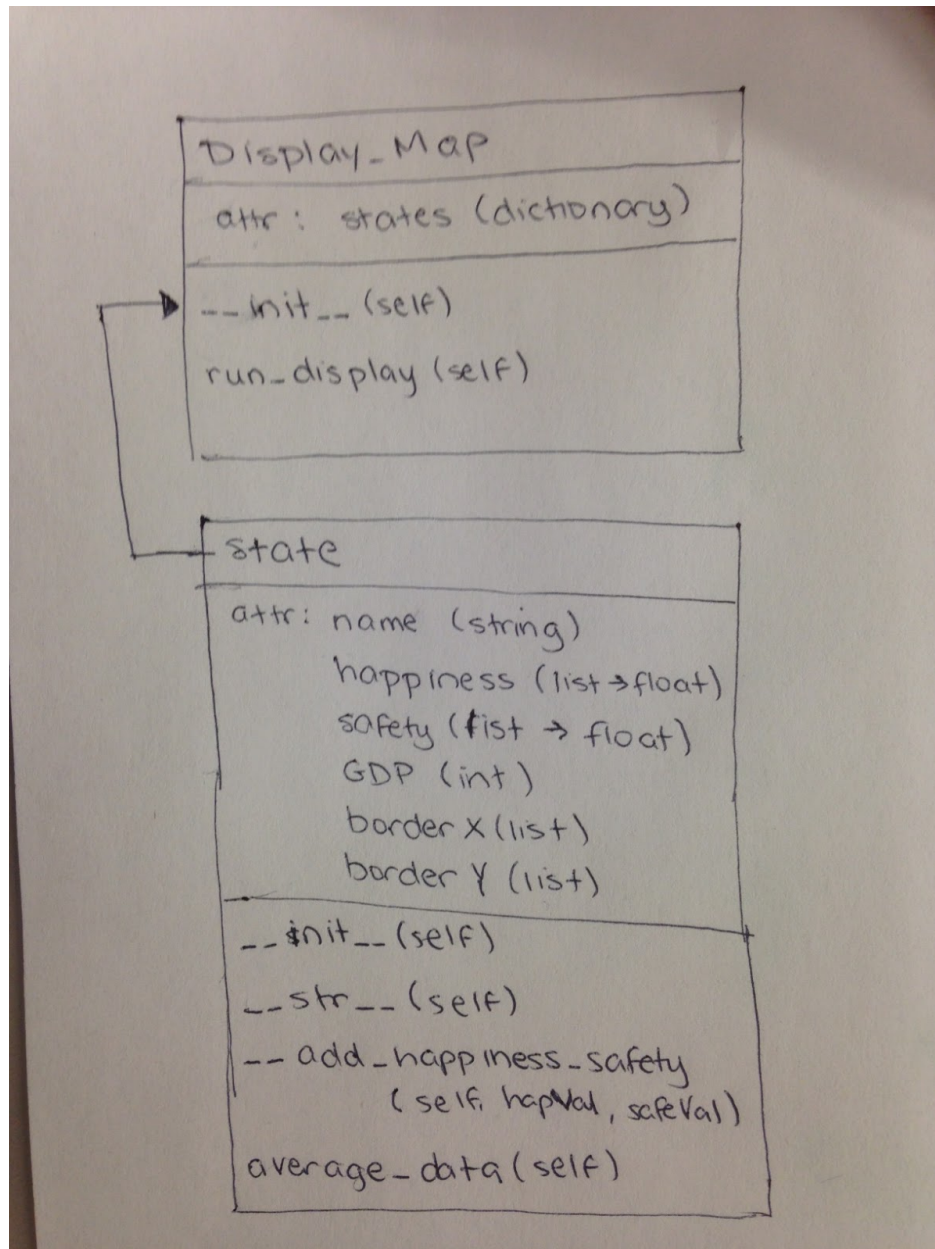 Display_Map
attr: states (dictionary)
__init__(self)
run_display(self)
state
attr: name (string)
happiness (list→float)
safety (list → float)
GDP (int)
border X (list)
border Y (list)
__init__(self)
__str__(self)
__add_happiness_safety
(self, hapVal, safeVal)
average_data(self)